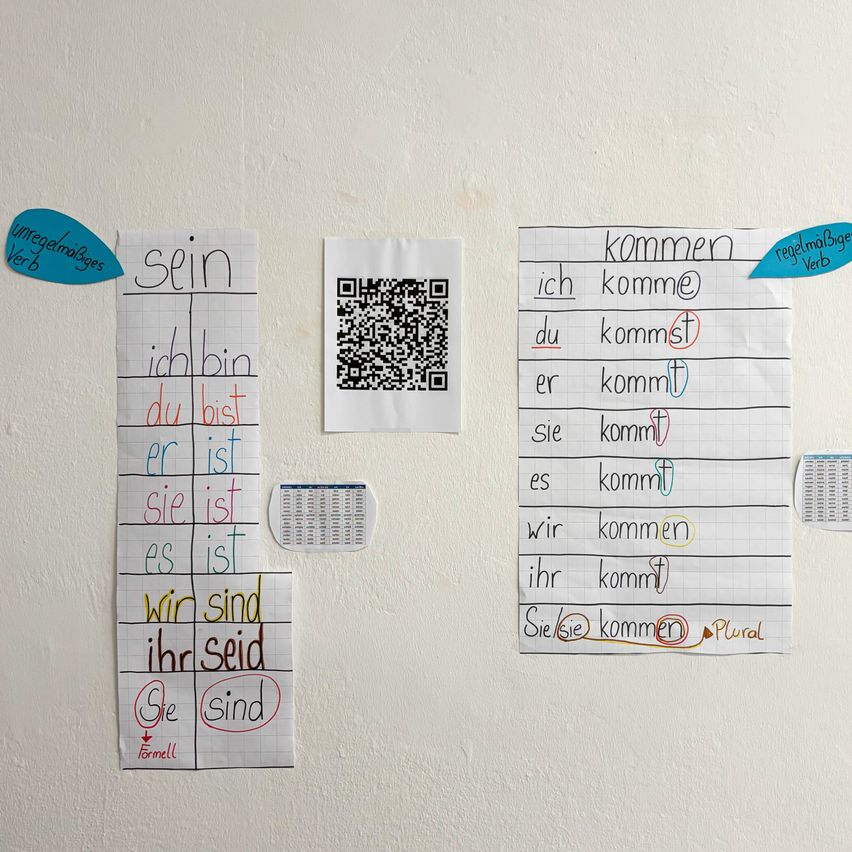 unregelmäßiges
Verb
sein
ich bin
du bist
er ist
sie ist
es ist
wir sind
ihr seid
Sie sind
Formell
kommen
regelmäßiges
Verb
ich komme
du kommst
er kommt
sie kommt
es kommt
wir kommen
ihr kommt
Sie/sie kommen Plural